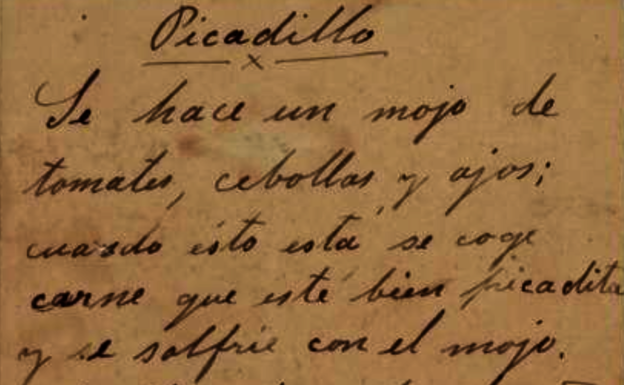 Picadillo
Se hace un mojo de
tomates, cebollas y ajos;
cuando ésto está se coge
carne que esté bien picadita
y se solfríe con el mojo.